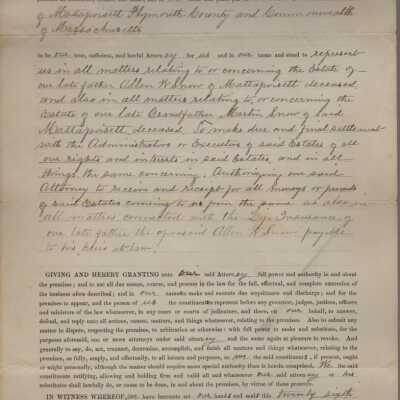 of Mattapoisett Plymouth County and Commonwealth
of Massachusetts
to be our true, sufficient, and lawful Attorney for us and in our name and stead to represent
us in all matters relating to or concerning the Estate of
our late father Allen W Snow of Mattapoisett deceased
and also in all matters relating to, or concerning the
Estate of our late Grandfather Martin Snow of said
Mattapoisett, deceased. To make due and final settlement
with the Administrators or Executors of said Estates of all
our rights and interests in said Estates, and in all
things the same concerning. Authorizing our said
Attorney to receive and receipt for all moneys or proceeds
of said Estates coming to us from the same as also in
all matters connected with the Life Insurance of
our late father the aforesaid Allen W Snow payable
to his heirs at law.
GIVING AND HEREBY GRANTING unto our said Attorney full power and authority in and about
the premises; and to use all due means, course, and process in the law for the full, effectual, and complete execution of
the business afore described; and in our names to make and execute due acquittance and discharge; and for the
premises to appear, and the person of us the constituents represent before any governor, judges, justices, officers
and ministers of the law whatsoever, in any court or courts of judicature, and there, on our behalf, to answer,
defend, and reply unto all actions, causes, matters, and things whatsoever, relating to the premises. Also to submit any
matter in dispute, respecting the premises, to arbitration or otherwise; with full power to make and substitute, for the
purposes aforesaid, one or more attorneys under said attorney and the same again at pleasure to revoke. And
generally to say, do, act, transact, determine, accomplish, and finish all matters and things whatsoever, relating to the
premises, as fully, amply, and effectually, to all intents and purposes, as we the said constituents, if present, ought
or might personally, although the matter should require more special authority than is herein comprised, We the said
constituents ratifying, allowing and holding firm and valid all and whatsoever our said attorney or his
substitutes shall lawfully do, or cause to be done, in and about the premises, by virtue of these presents.
IN WITNESS WHEREOF, we have hereunto set our hands and seals this twenty sixth